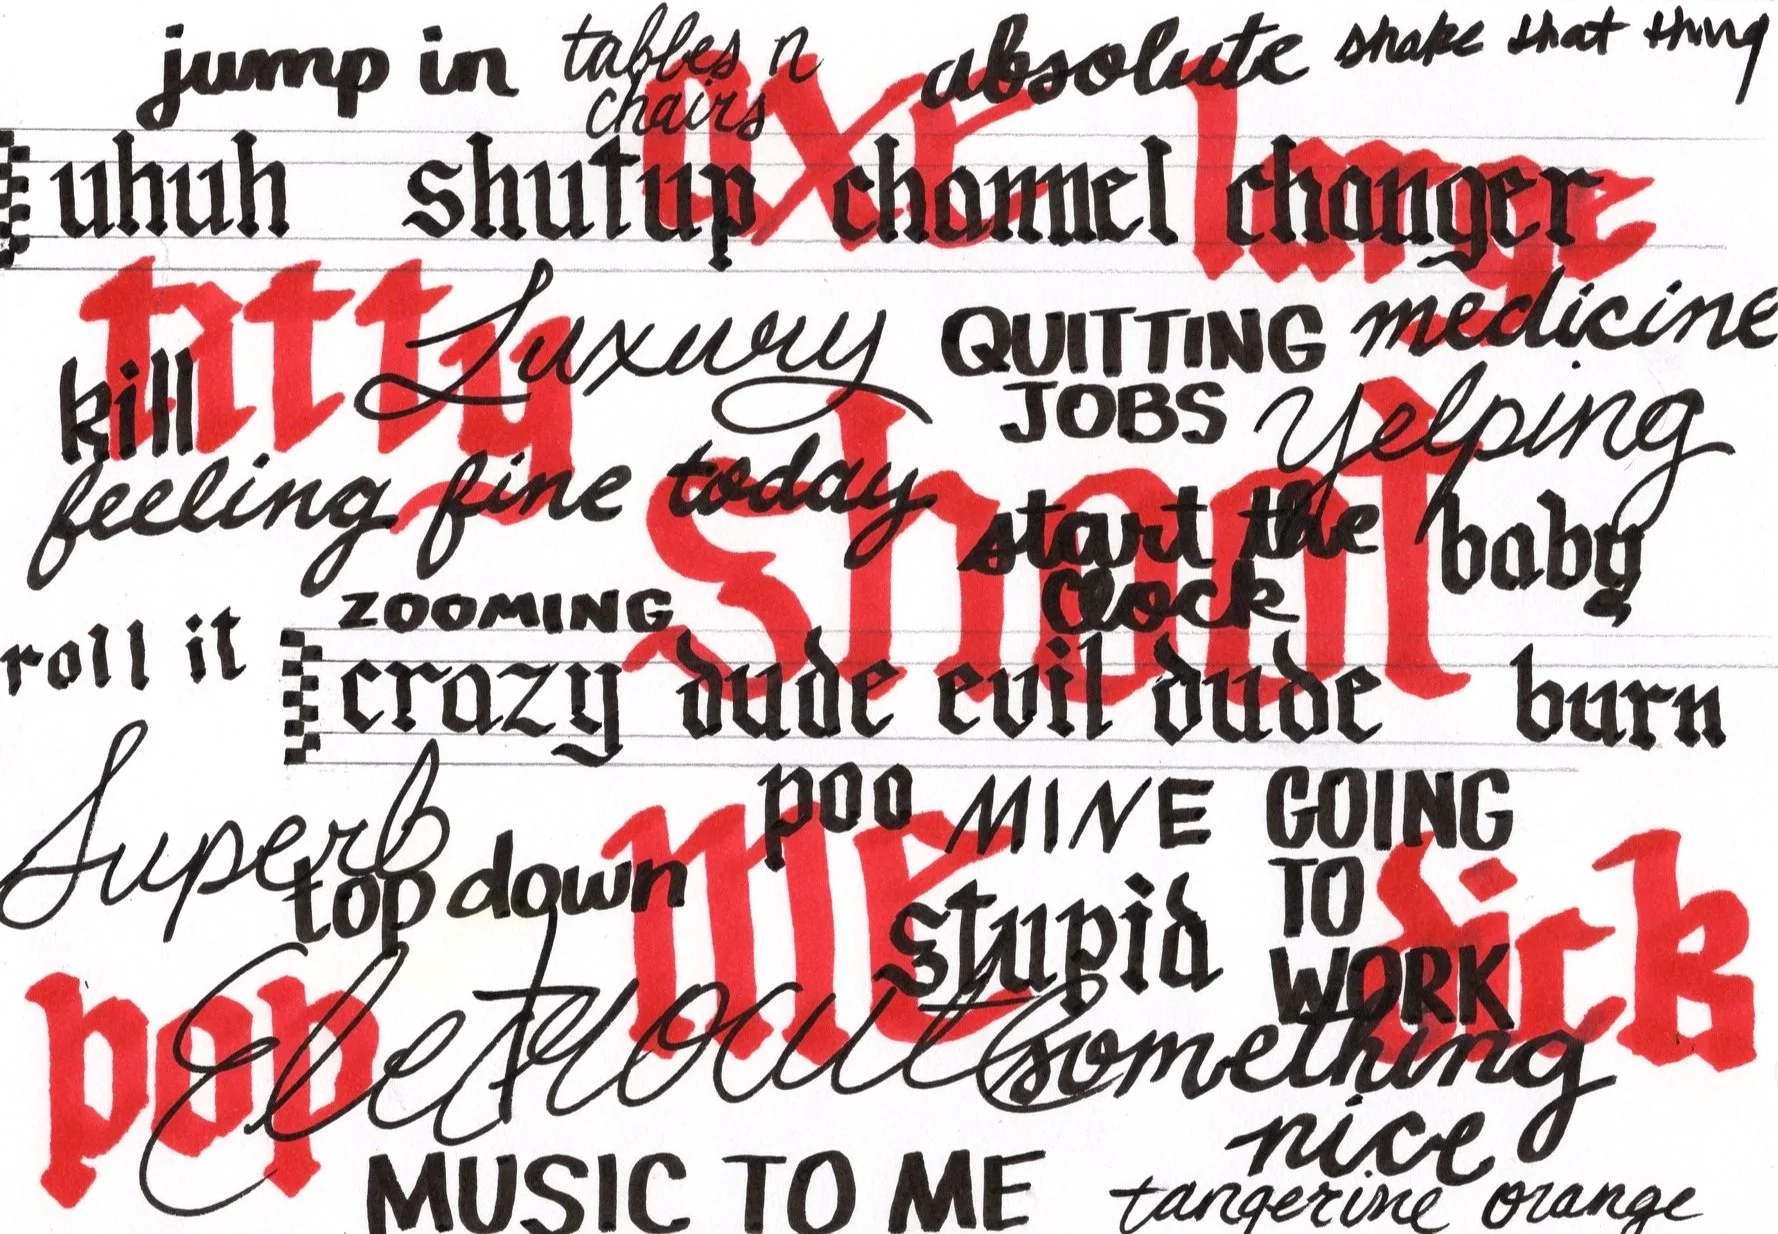 jump in
tables n
chairs
absolute
shake that thing
axe large
uhuh shutup channel changer
titty
Luxury
QUITTING
JOBS
medicine
kill
yelping
feeling fine today
shoot
start the
clock
baby
roll it
ZOOMING
crazy dude evil dude burn
Superb
poo
MINE
GOING
TO
WORK
top down
me
stupid
dick
pop
something
nice
MUSIC TO ME
tangerine orange